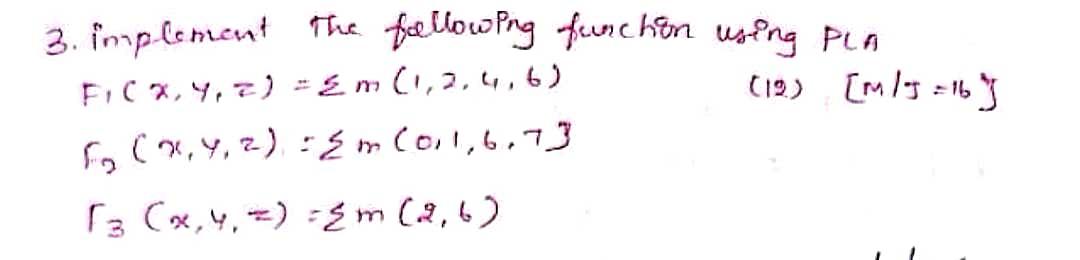 3. implement the following function using PLA
F1(x, y, z) = Σm(1,2,4,6) (12) [M/J = 16]
F2(x, y, z) = Σm(0,1,6,7]
F3(x, y, z) = Σm(2,6)